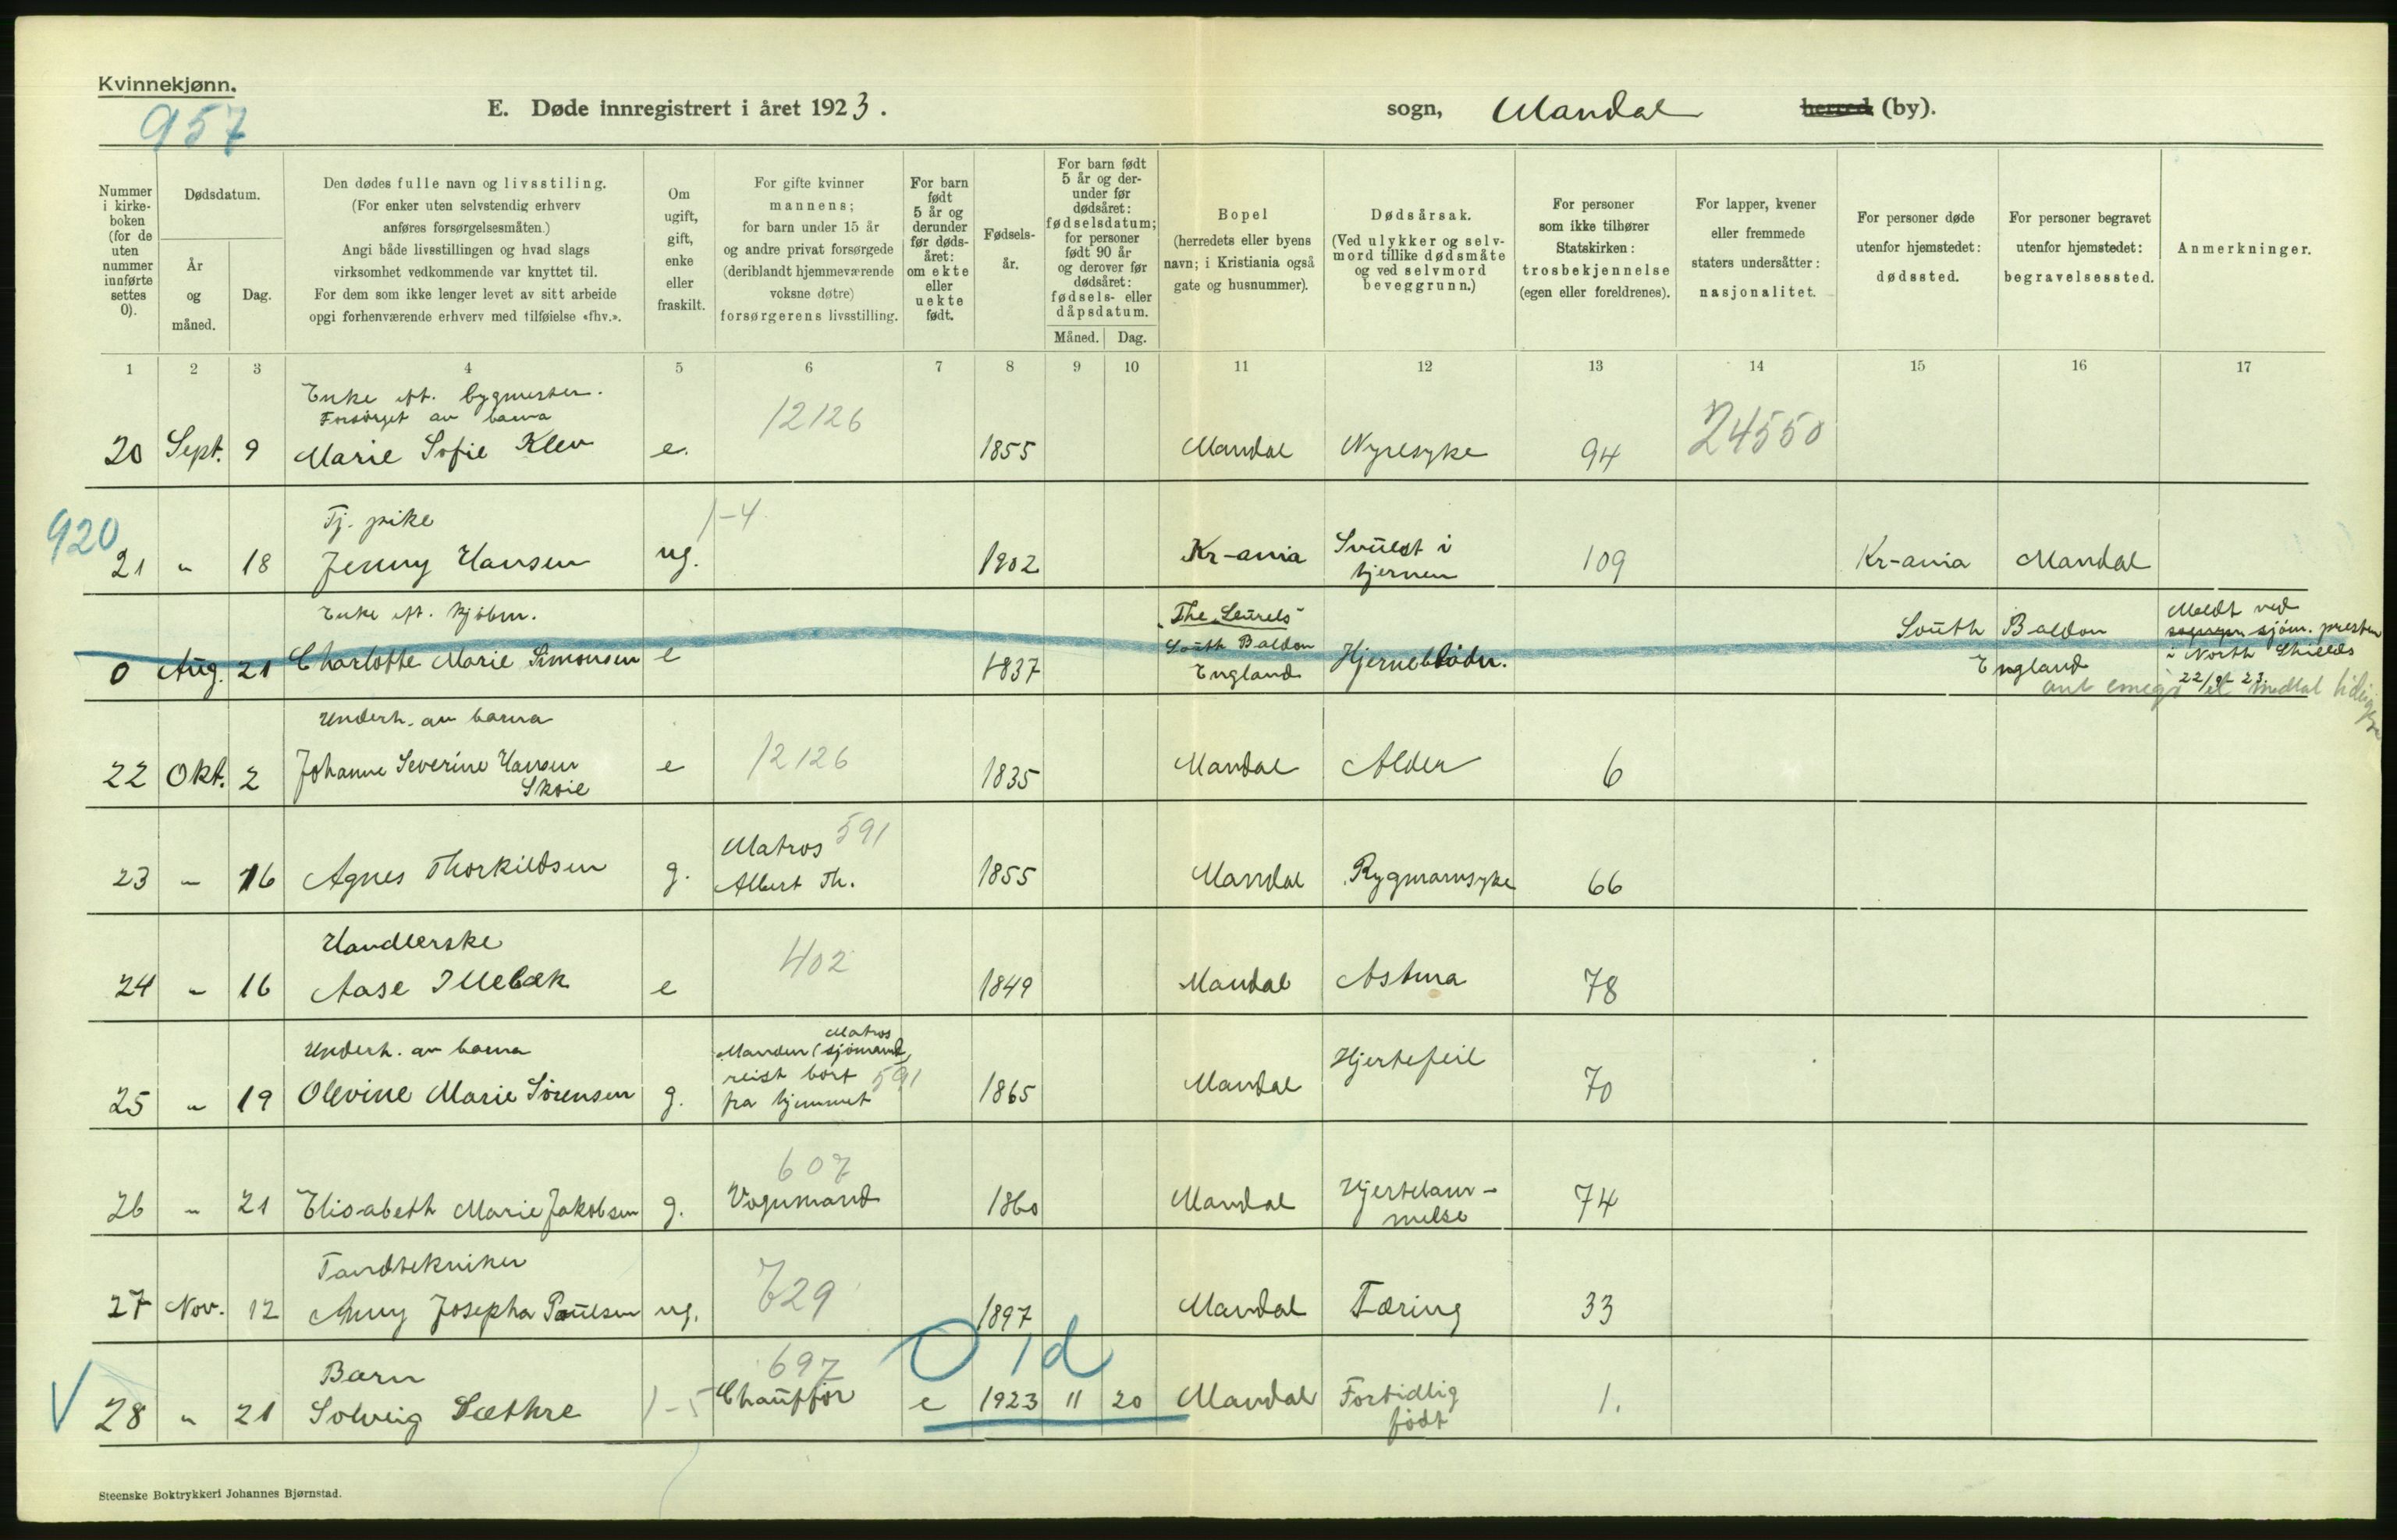 Kvinnekjønn.
957
E. Døde innregistrert i året 1923.
sogn, Mandal herred (by).
Nummer i kirkeboken (for de uten nummer innførte settes 0).
Dødsdatum.
År og måned.
Dag.
Den dødes fulle navn og livsstiling.
(For enker uten selvstendig erhverv
anføres forsørgelsesmåten.)
Angi både livsstillingen og hvad slags
virksomhet vedkommende var knyttet til.
For dem som ikke lenger levet av sitt arbeide
opgi forhenværende erhverv med tilføielse «fhv.».
Om ugift, gift, enke eller fraskilt.
For gifte kvinner
mannens;
for barn under 15 år
og andre privat forsørgede
(deriblandt hjemmeværende
voksne døtre)
forsørgerens livsstilling.
For barn født 5 år og derunder før dødsåret: om ekte eller uekte født.
Fødselsår.
For barn født 5 år og derunder før dødsåret: fødselsdatum; for personer født 90 år og derover før dødsåret: fødsels- eller dåpsdatum.
Måned. Dag.
Bopel
(herredets eller byens
navn; i Kristiania også
gate og husnummer).
Dødsårsak.
(Ved ulykker og selv-
mord tillike dødsmåte
og ved selvmord
beveggrunn.)
For personer
som ikke tilhører
Statskirken:
trosbekjennelse
(egen eller foreldrenes).
For lapper, kvener
eller fremmede
staters undersåtter:
nasjonalitet.
For personer døde
utenfor hjemstedet:
dødssted.
For personer begravet
utenfor hjemstedet:
begravelsessted.
Anmerkninger.
1 2 3 4 5 6 7 8 9 10 11 12 13 14 15 16 17
Enke eft. bygmester.
Forsørget av barna
12126
24550
20 Sept. 9 Marie Sofie Klev e. 1855 Mandal Nyresyke 94
920
Tj. pike
1-4
21 " 18 Jenny Hansen ug. 1902 Kr-ania Svulst i hjernen 109 Kr-ania Mandal
Enke eft. kjøbm.
0 Aug. 21 Charlotte Marie Simonsen e 1837 "The Leurels" South Baldon England Hjerneblødn. South Baldon England
Meldt ved
sjøm. presten
i North Shields
22/9 23
Underh. av barna
22 Okt. 2 Johanne Severine Hansen Skoie e 12126 1835 Mandal Alder 6
23 " 16 Agnes Thorkildsen g. Matros 591 Albert Th. 1855 Mandal Rygmarvsyke 66
Handlerske
24 " 16 Aase Illebæk e 402 1849 Mandal Astma 78
Underh. av barna
25 " 19 Olevine Marie Sørensen g. Manden (Matros sjömand, reist bort fra hjemmet 591 1865 Mandal Hjertefeil 70
26 " 21 Elisabeth Marie Jakobsen g. 607 Vognmand 1860 Mandal Hjertelam-melse 74
Tandtekniker
27 Nov. 12 Anny Josepha Paulsen ug. 729 1897 Mandal Tæring 33
0 1d
Barn
28 " 21 Solveig Sæthre 1-5 697 Chauffør e 1923 11 20 Mandal Fortidlig født 1.
Steenske Boktrykkeri Johannes Bjørnstad.